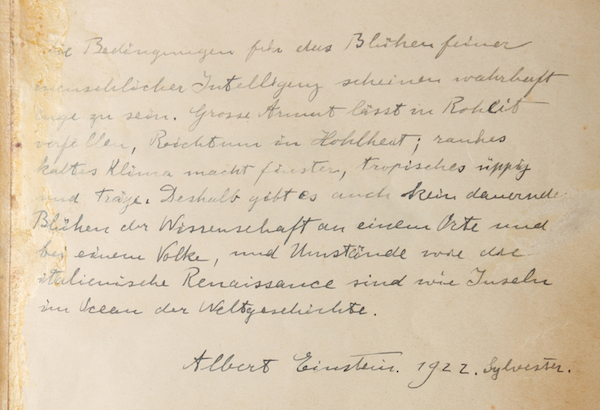 Die Bedingungen für das Blühen feiner
menschlicher Intelligenz scheinen wahrhaft
enge zu sein. Grosse Armut lässt in Roheit
verfallen, Reichtum in Hohlheit; rauhes
kaltes Klima macht finster, tropisches üppig
und träge. Deshalb gibt es auch kein dauernde
Blühen der Wissenschaft an einem Orte und
bei einem Volke, und Umstände wie die
italienische Renaissance sind wie Inseln
im Ocean der Weltgeschichte.
Albert Einstein. 1922. Sylvester.